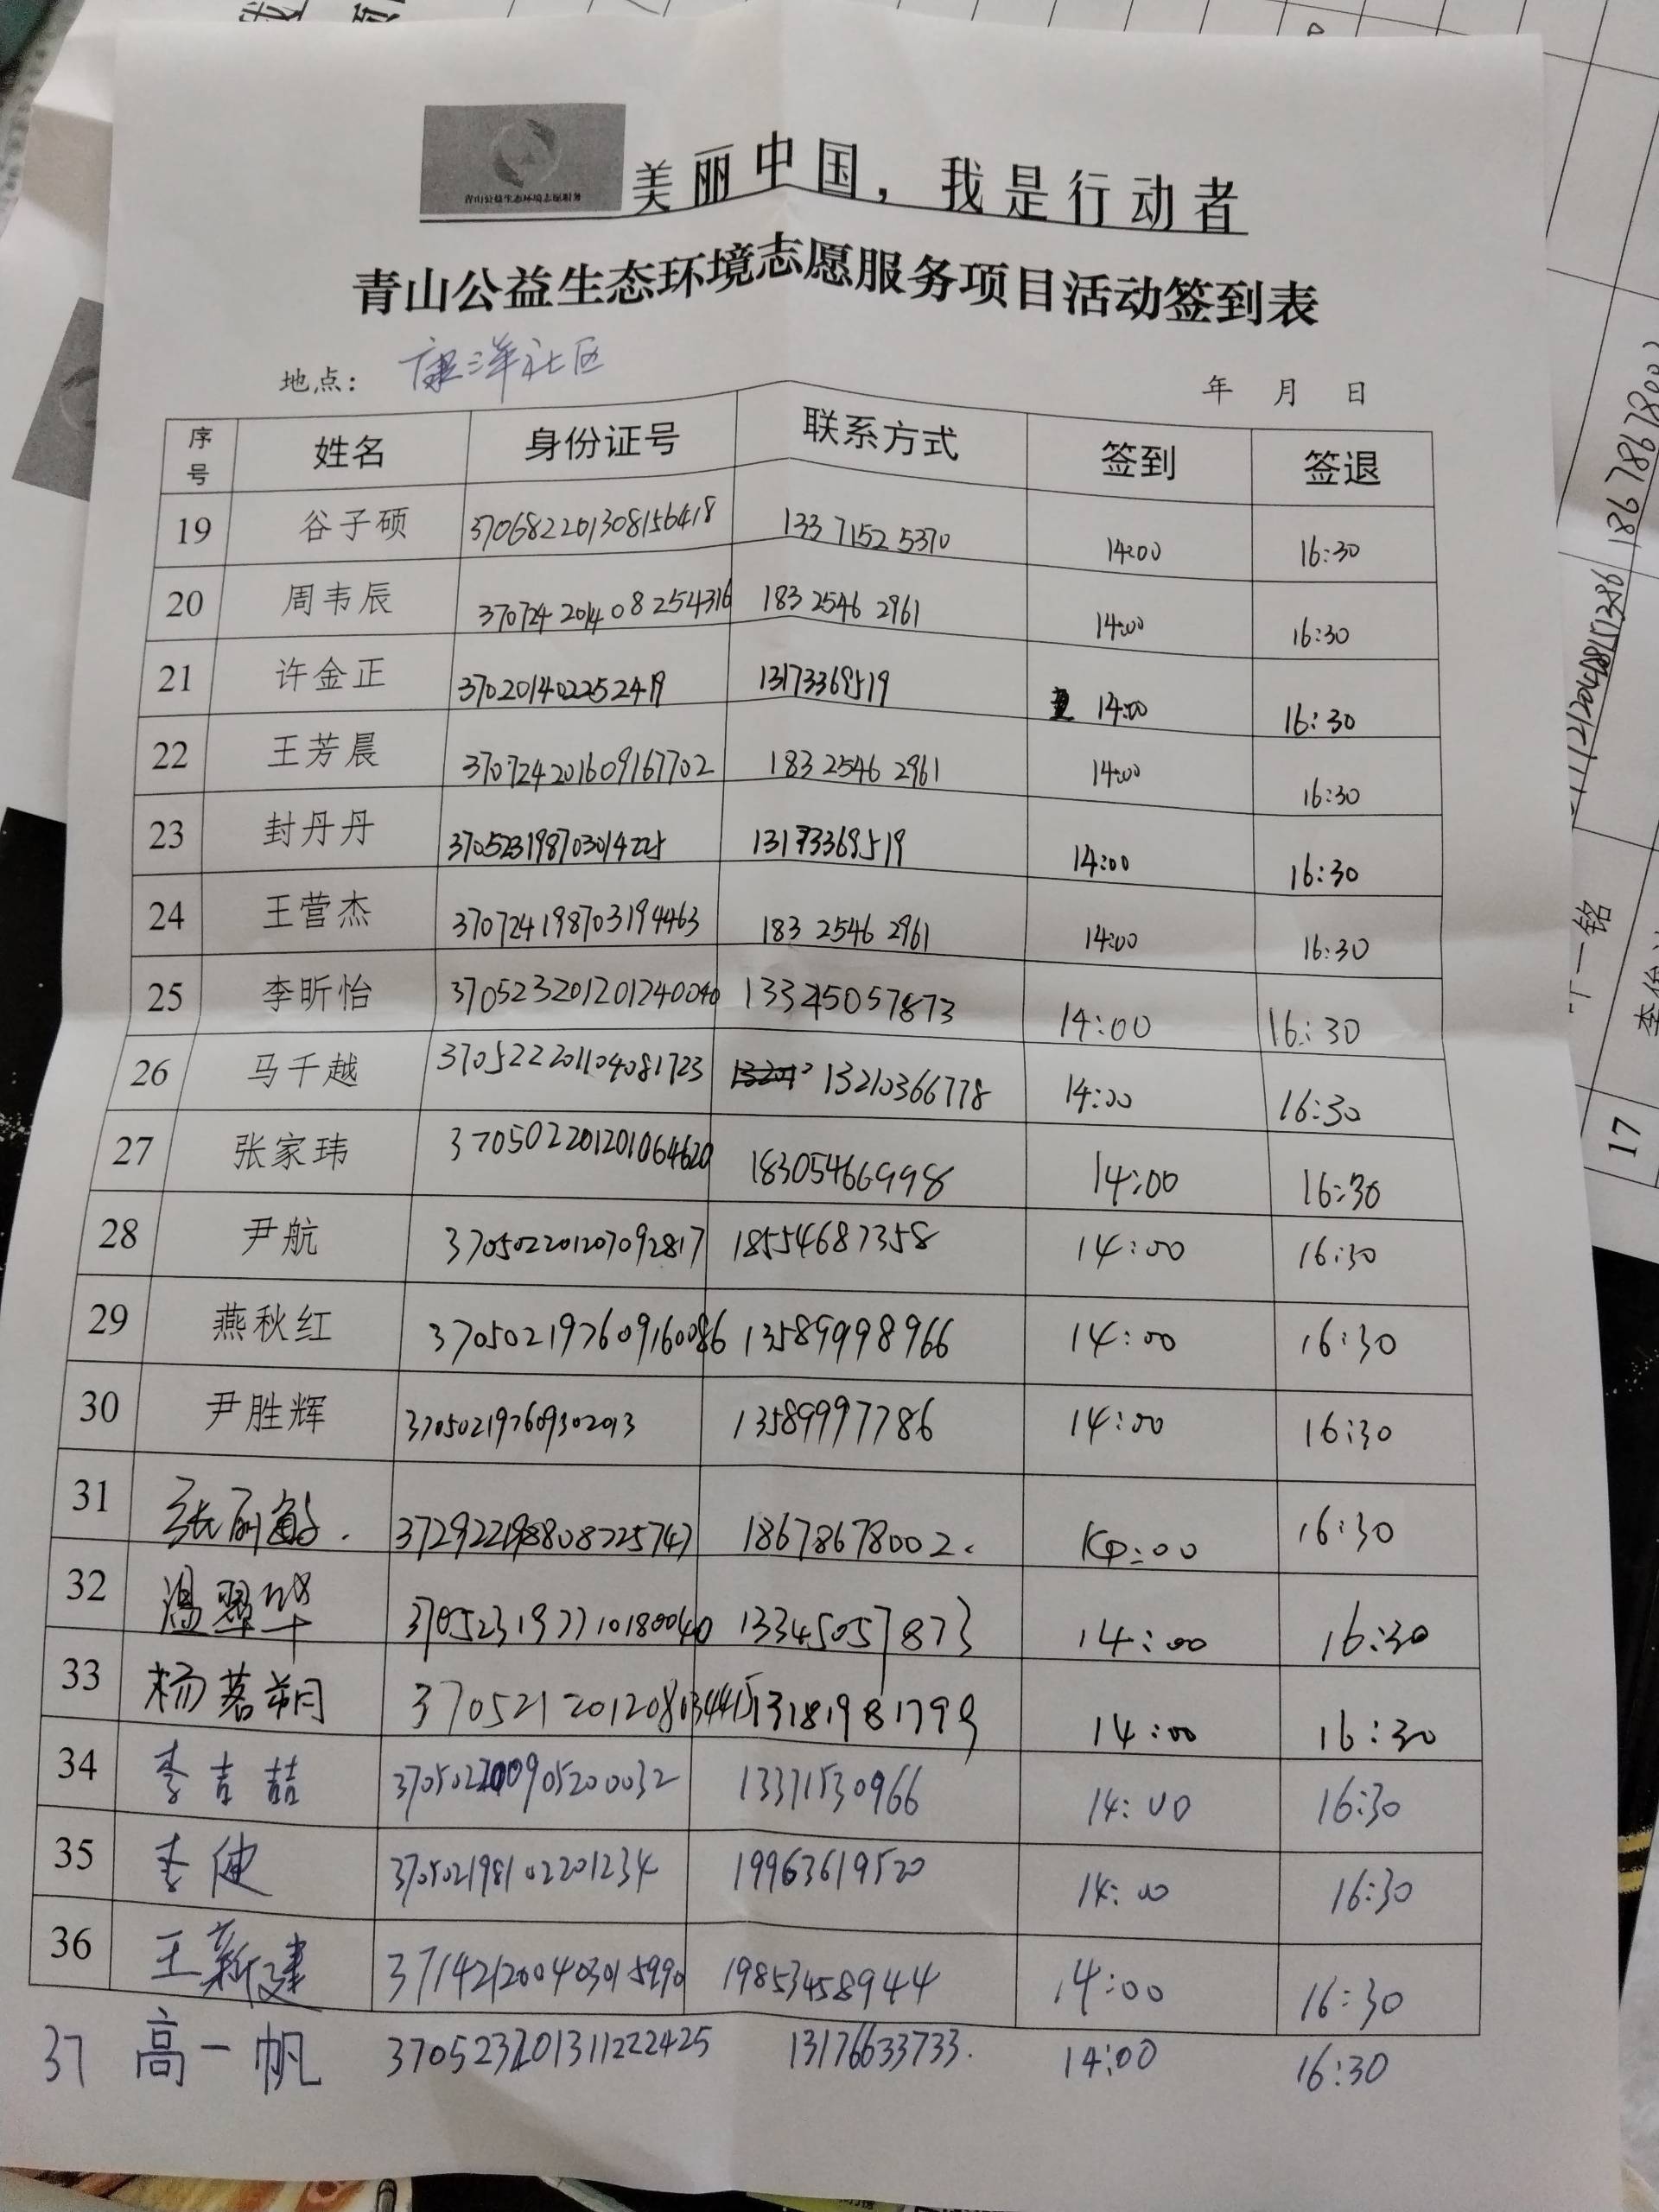 青山公益生态环境志愿服务
美丽中国，我是行动者
青山公益生态环境志愿服务项目活动签到表
地点： 康洋社区 年 月 日
序号 姓名 身份证号 联系方式 签到 签退
19 谷子硕 370682201308156418 133 7152 5370 14:00 16:30
20 周韦辰 370724201408254316 183 2546 2961 14:00 16:30
21 许金正 370201402252419 13173369519 14:00 16:30
22 王芳晨 370724201609167702 183 2546 2961 14:00 16:30
23 封丹丹 370523198703014225 13173369519 14:00 16:30
24 王营杰 370724198703194463 183 2546 2961 14:00 16:30
25 李昕怡 370523201201240040 14:00 16:30
26 马千越 370522201104081723 13210366778 14:00 16:30
27 张家玮 370502201201064620 18305466998 14:00 16:30
28 尹航 370502201207092817 18554687358 14:00 16:30
29 燕秋红 370502197609160086 13589998966 14:00 16:30
30 尹胜辉 370502197609302013 13589997786 14:00 16:30
31 张丽敏. 372922198808225747 18678678002. 16:30
32 温翠华 370523197710180040 13345057873 14:00 16:30
33 杨茗朔 13181981799 14:00 16:30
34 李吉喆 370502200905200032 13371530966 14:00 16:30
35 李健 370502198102201234 19963619520 14:00 16:30
36 王新建 371421200403015990 19853458944 14:00 16:30
37 高一帆 370523201311222425 13176633733. 14:00 16:30
17